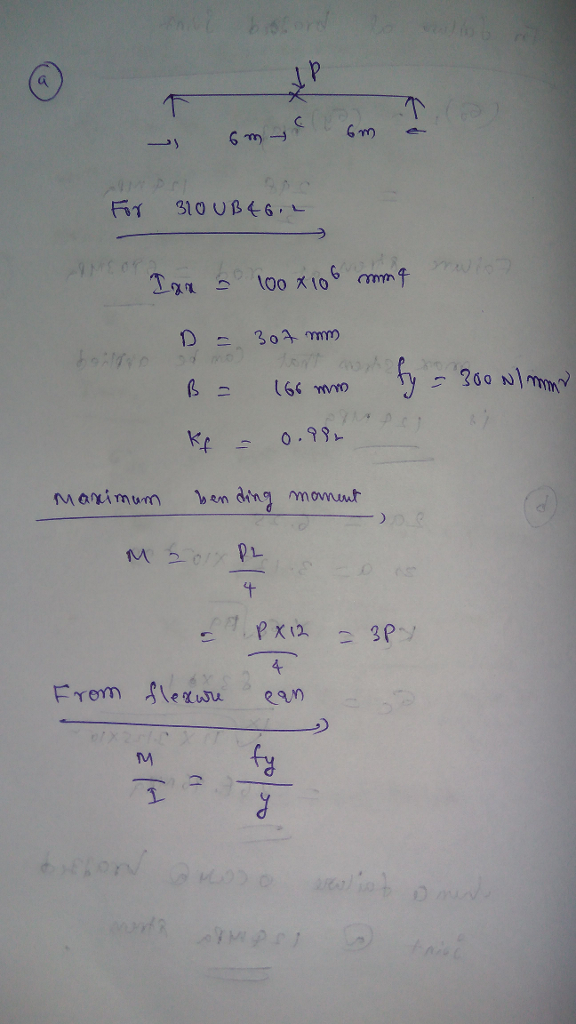 a
↓P
C
→ 6m → 6m ←
For 310 UB 46.2
Ixx = 100 x 10^6 mm4
D = 307 mm
B = 166 mm fy = 300 N/mm2
Kf = 0.992
Maximum bending moment
M = PL/4
= P x 12/4 = 3P
From flexure eqn
M/I = fy/y